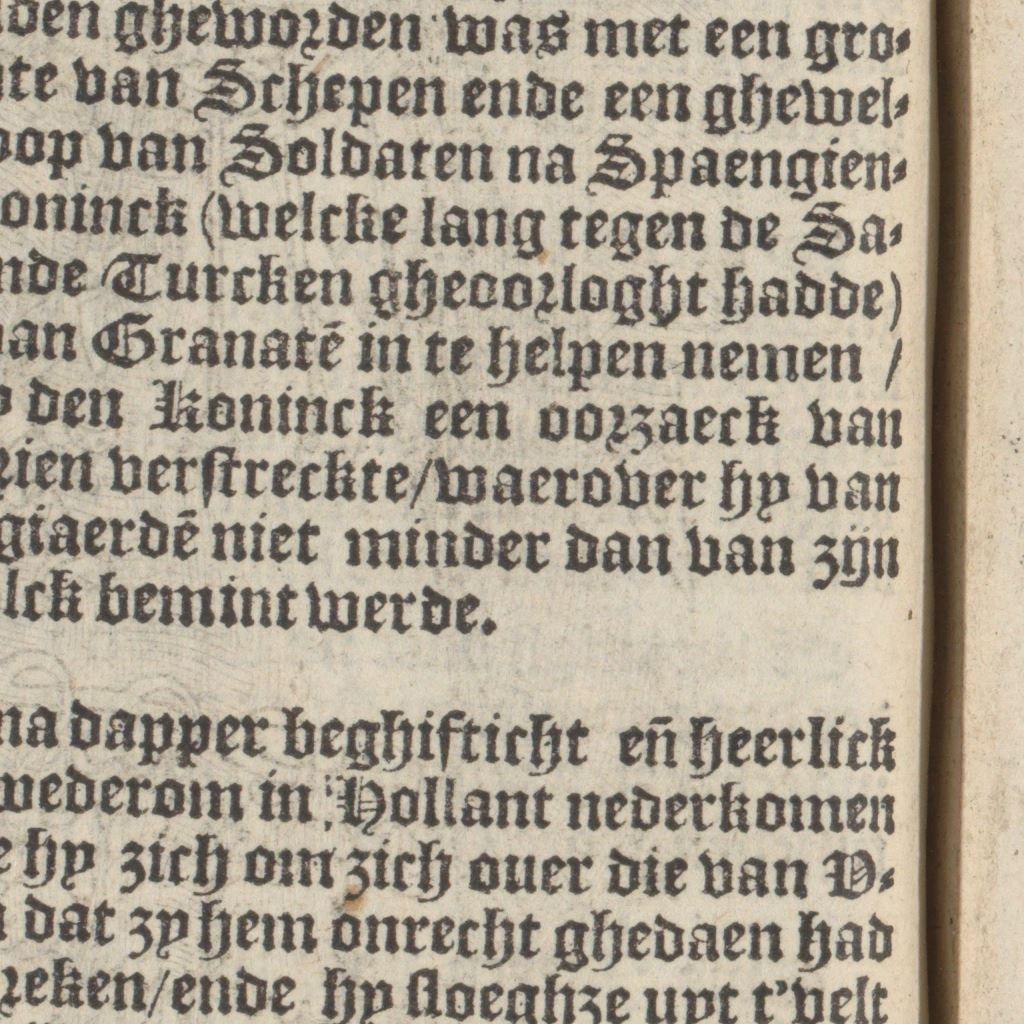 den gheworden was met een gro-
te van Schepen ende een ghewel-
oop van Soldaten na Spaengien-
oninck (welcke lang tegen de Sa-
nde Turcken gheoorloght hadde)
an Granatē in te helpen nemen /
den Koninck een oorzaeck van
rien verstreckte/waerover hy van
giaerdē niet minder dan van zijn
lck bemint werde.
na dapper beghifticht en̄ heerlick
wederom in Hollant nederkomen
e hy zich om zich over die van V-
dat zy hem onrecht ghedaen had
reken/ende hy sloeghze uyt t'velt